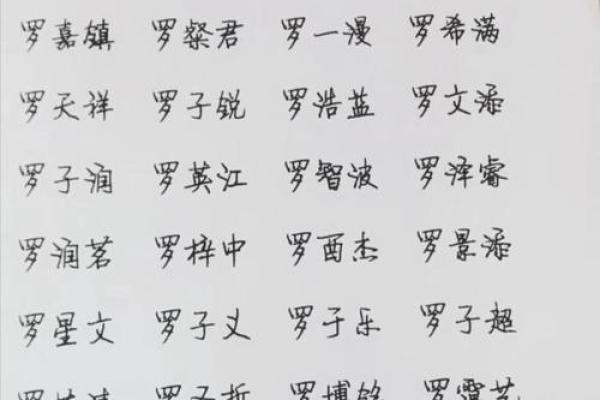 罗嘉镇 罗粲君 罗一漫 罗希满
罗天祥 罗子锐 罗浩蓝 罗文添
罗子润 罗英江 罗智波 罗泽睿
罗润茗 罗梓中 罗酉杰 罗景添
罗星文 罗子义 罗于乐 罗子超
罗 罗子哲 罗博铭 罗霄艺